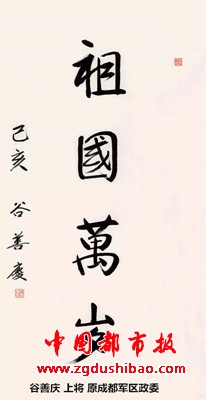 祖國萬歲
己亥 谷善慶
中国都市报
www.zgdushibao.com
谷善庆 上将 原成都军区政委